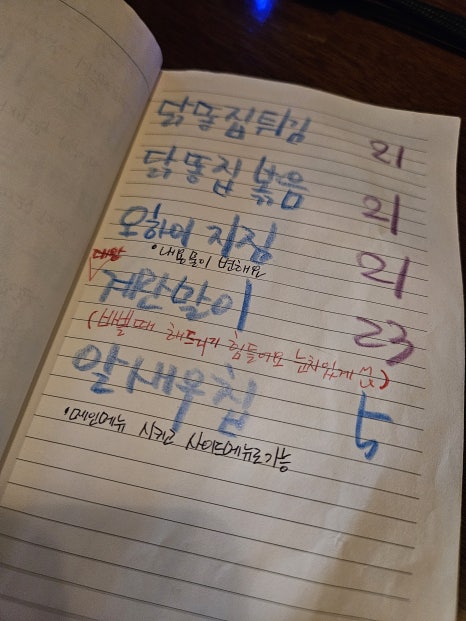 닭똥집튀김 21
닭똥집 볶음 21
오하여 지짐 21
•내용물이 변해요
대왕
계란말이 23
(바쁠때 해드리기 힘들어요 눈치있게 ^^)
알새우칩 5
•메인메뉴 시키고 사이드메뉴로가능